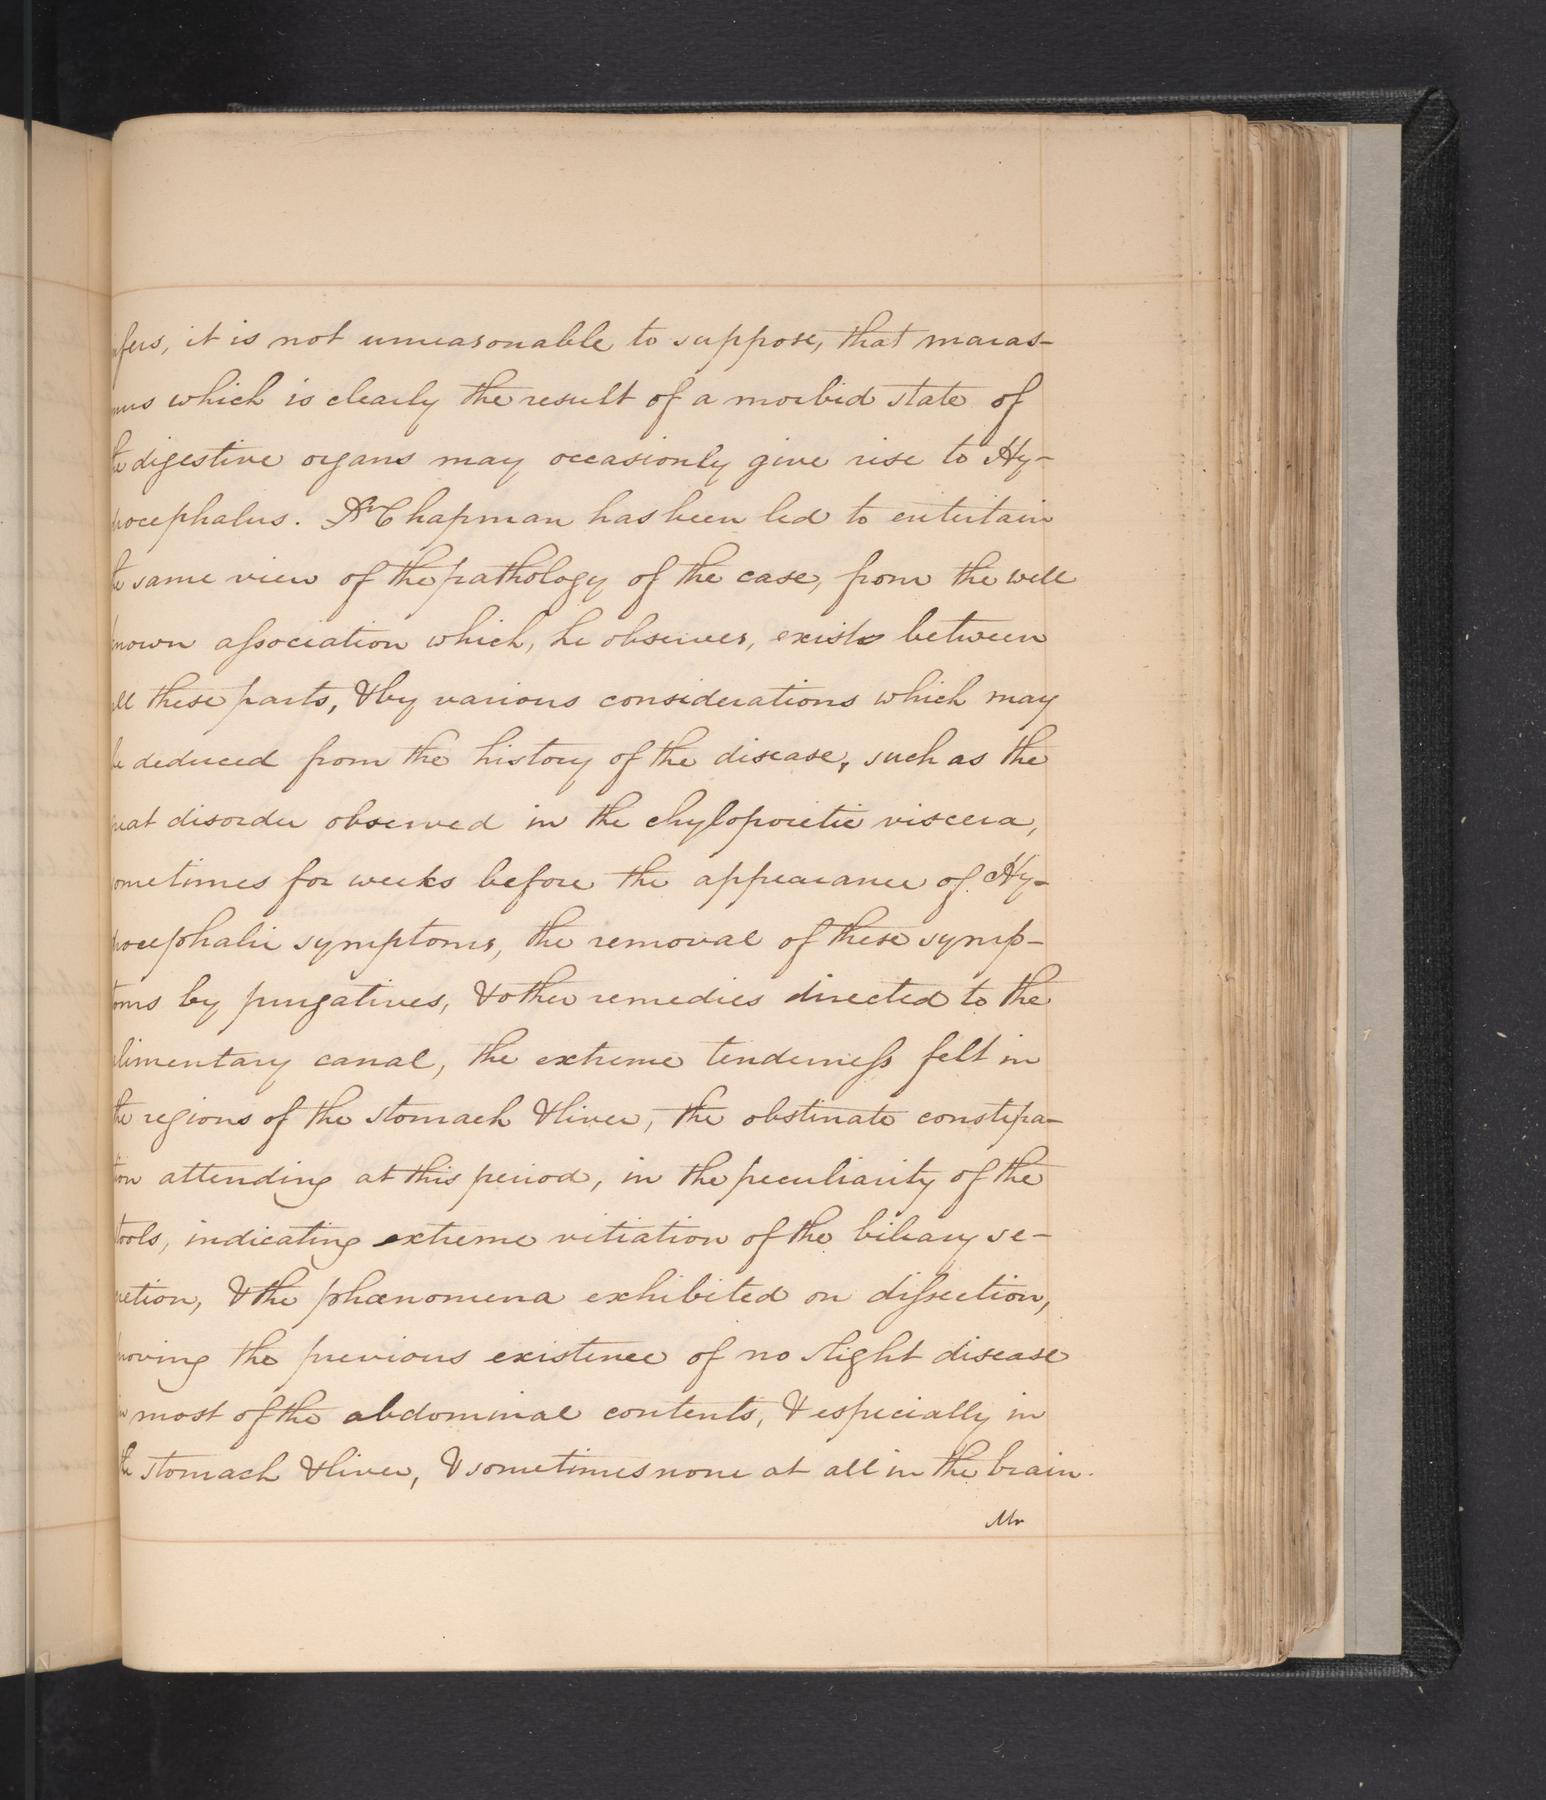 nfers, it is not unreasonable to suppose, that maras-
mus which is clearly the result of a morbid state of
the digestive organs may occasionly give rise to Hy-
drocephalus. Dr Chapman has been led to entertain
the same view of the pathology of the case, from the well
known association which, he observes, exists between
all these parts, & by various considerations which may
be deduced from the history of the disease, such as the
great disorder observed in the chylopoietic viscera,
sometimes for weeks before the appearance of Hy-
drocephalic symptoms, the removal of these symp-
toms by purgatives, & other remedies directed to the
alimentary canal, the extreme tenderness felt in
the regions of the stomach & liver, the obstinate constipa-
tion attending at this period, in the peculiarity of the
stools, indicating extreme vitiation of the biliary se-
cretion, & the phœnomena exhibited on dissection,
proving the previous existence of no slight disease
in most of the abdominal contents, & especially in
the stomach & liver, & sometimes none at all in the brain.
Mr